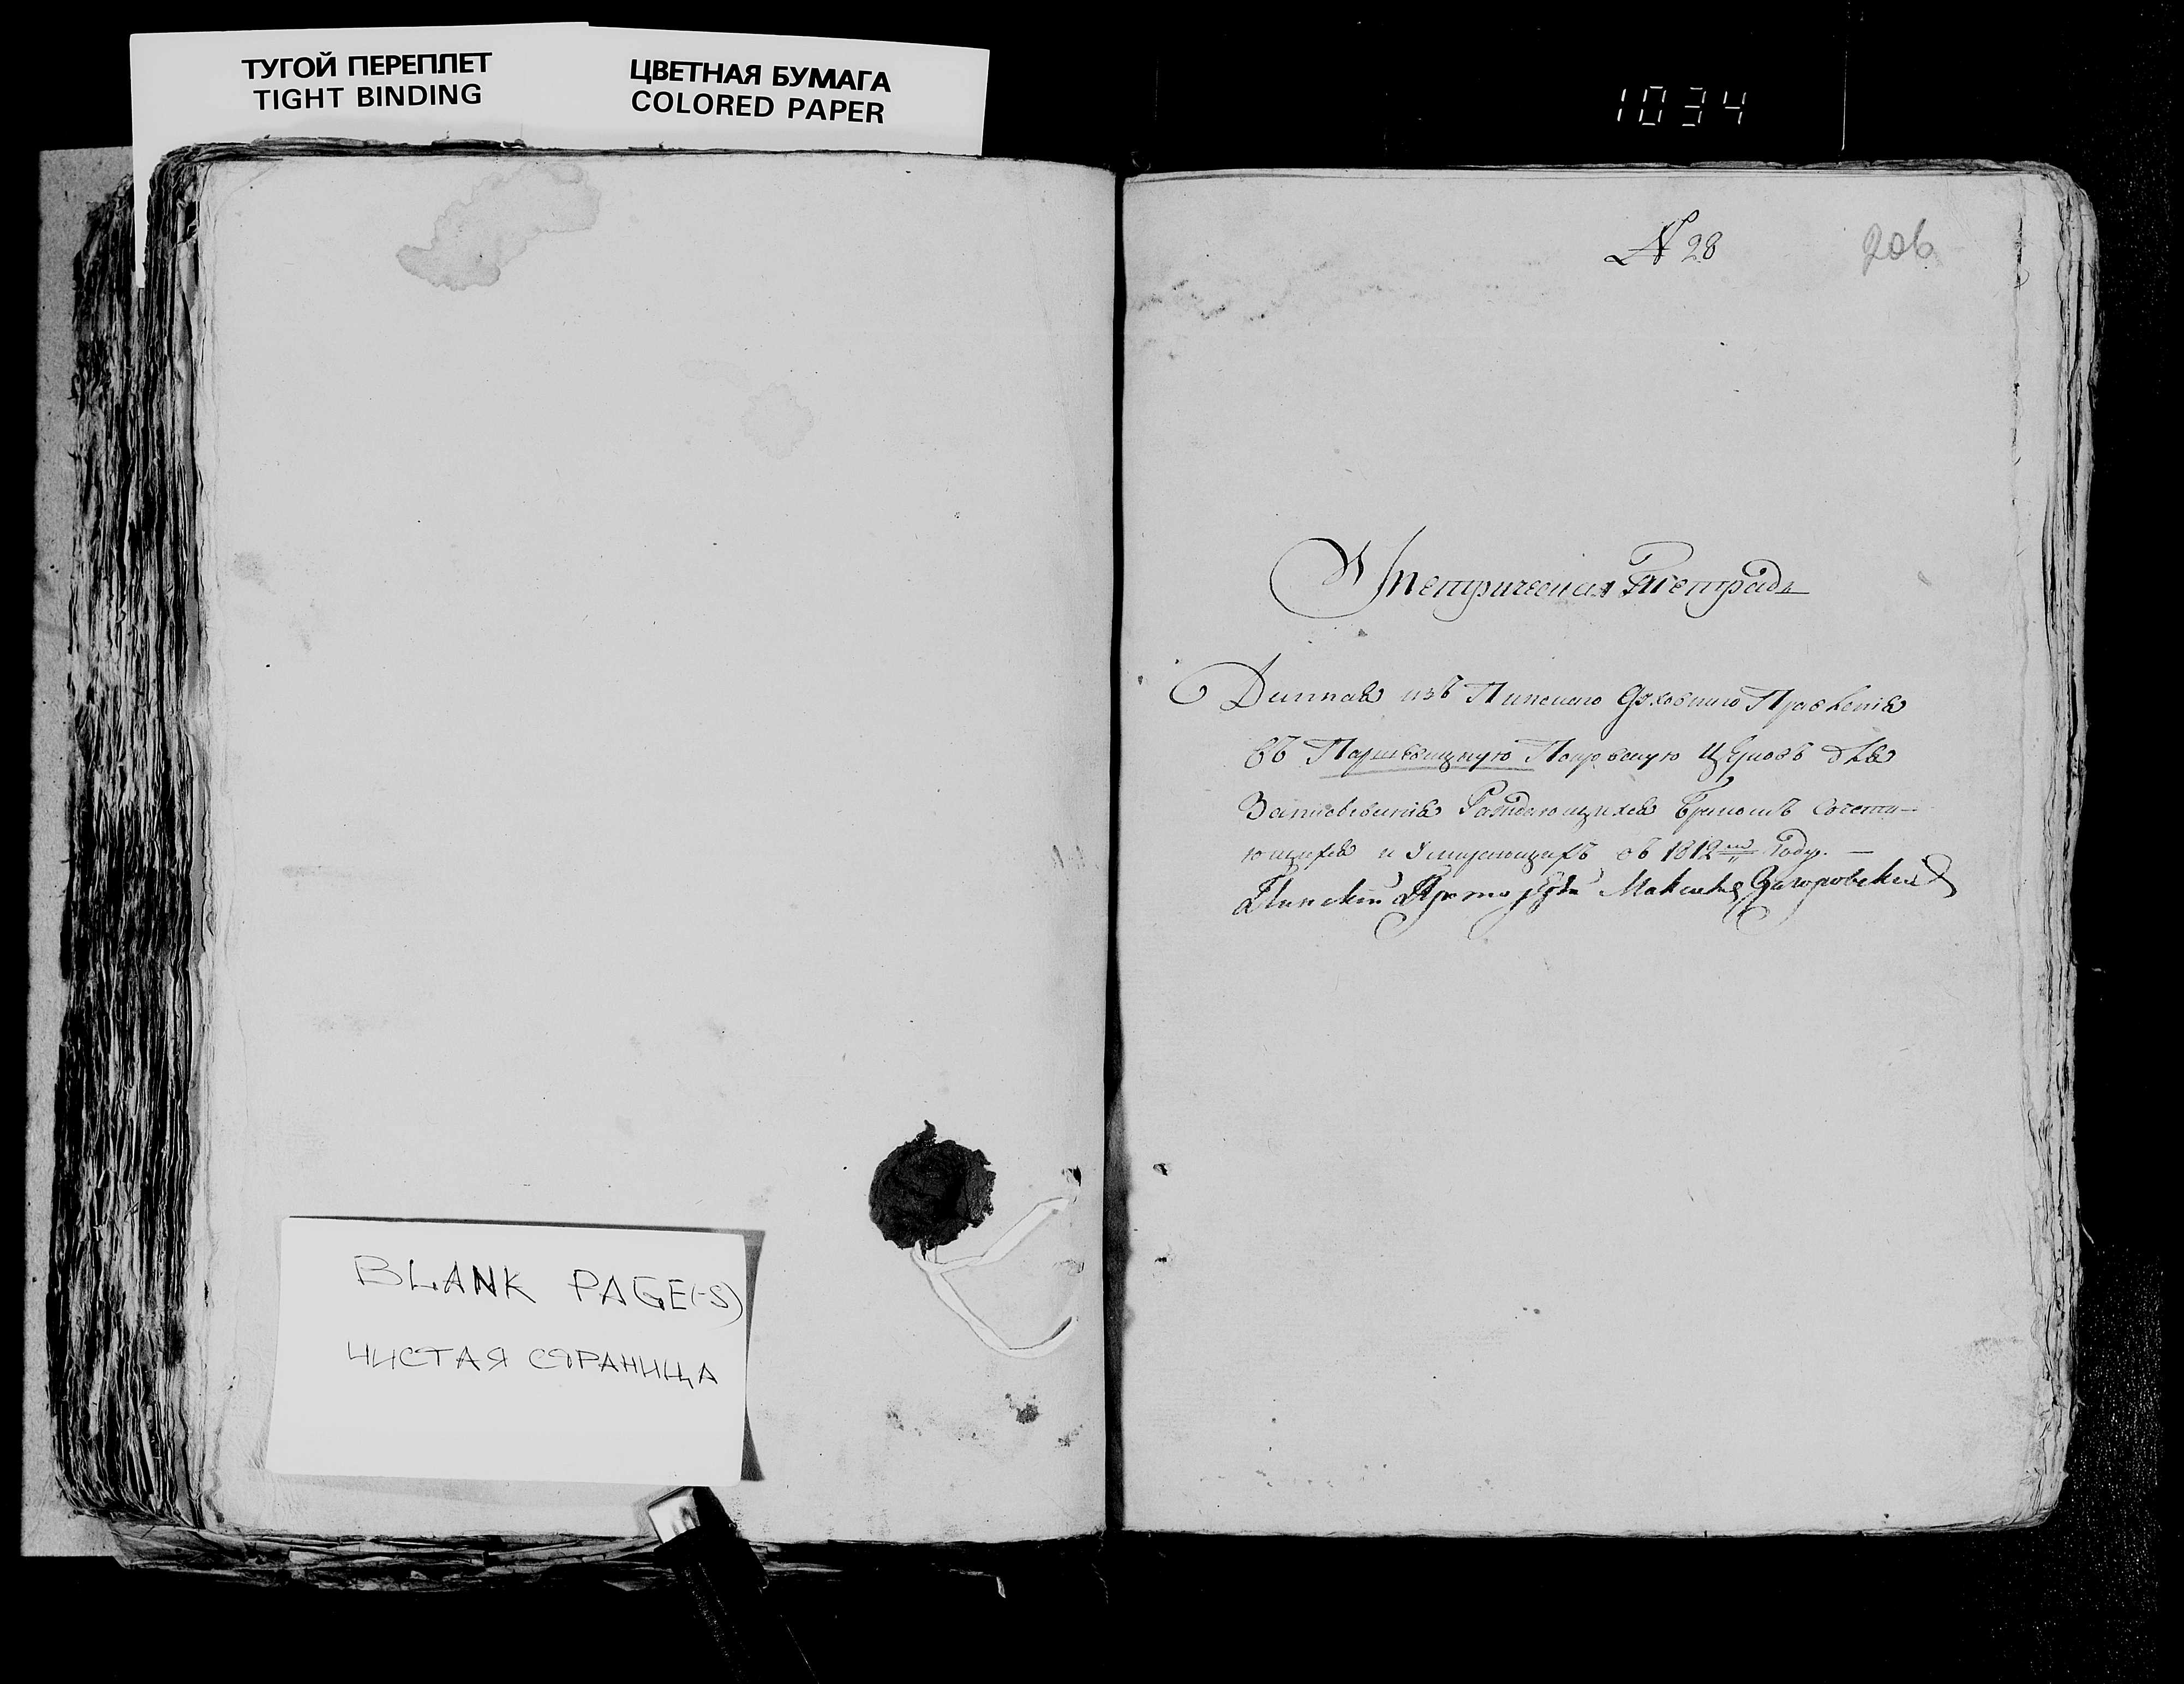 ТУГОЙ ПЕРЕПЛЕТ
TIGHT BINDING
ЦВЕТНАЯ БУМАГА
COLORED PAPER
1034
N 28
206
Метрическая Тетрадь
Данная изъ Пинскаго Духовнаго Правленія
въ Паршевицкую Покровскую Церковь для
Записыванія Раждающихся Бракомъ Сочета-
ющихся и Умирающихъ въ 1812м Году. —
Пинскій Протоіерей
BLANK PAGE(-S)
ЧИСТАЯ СТРАНИЦА